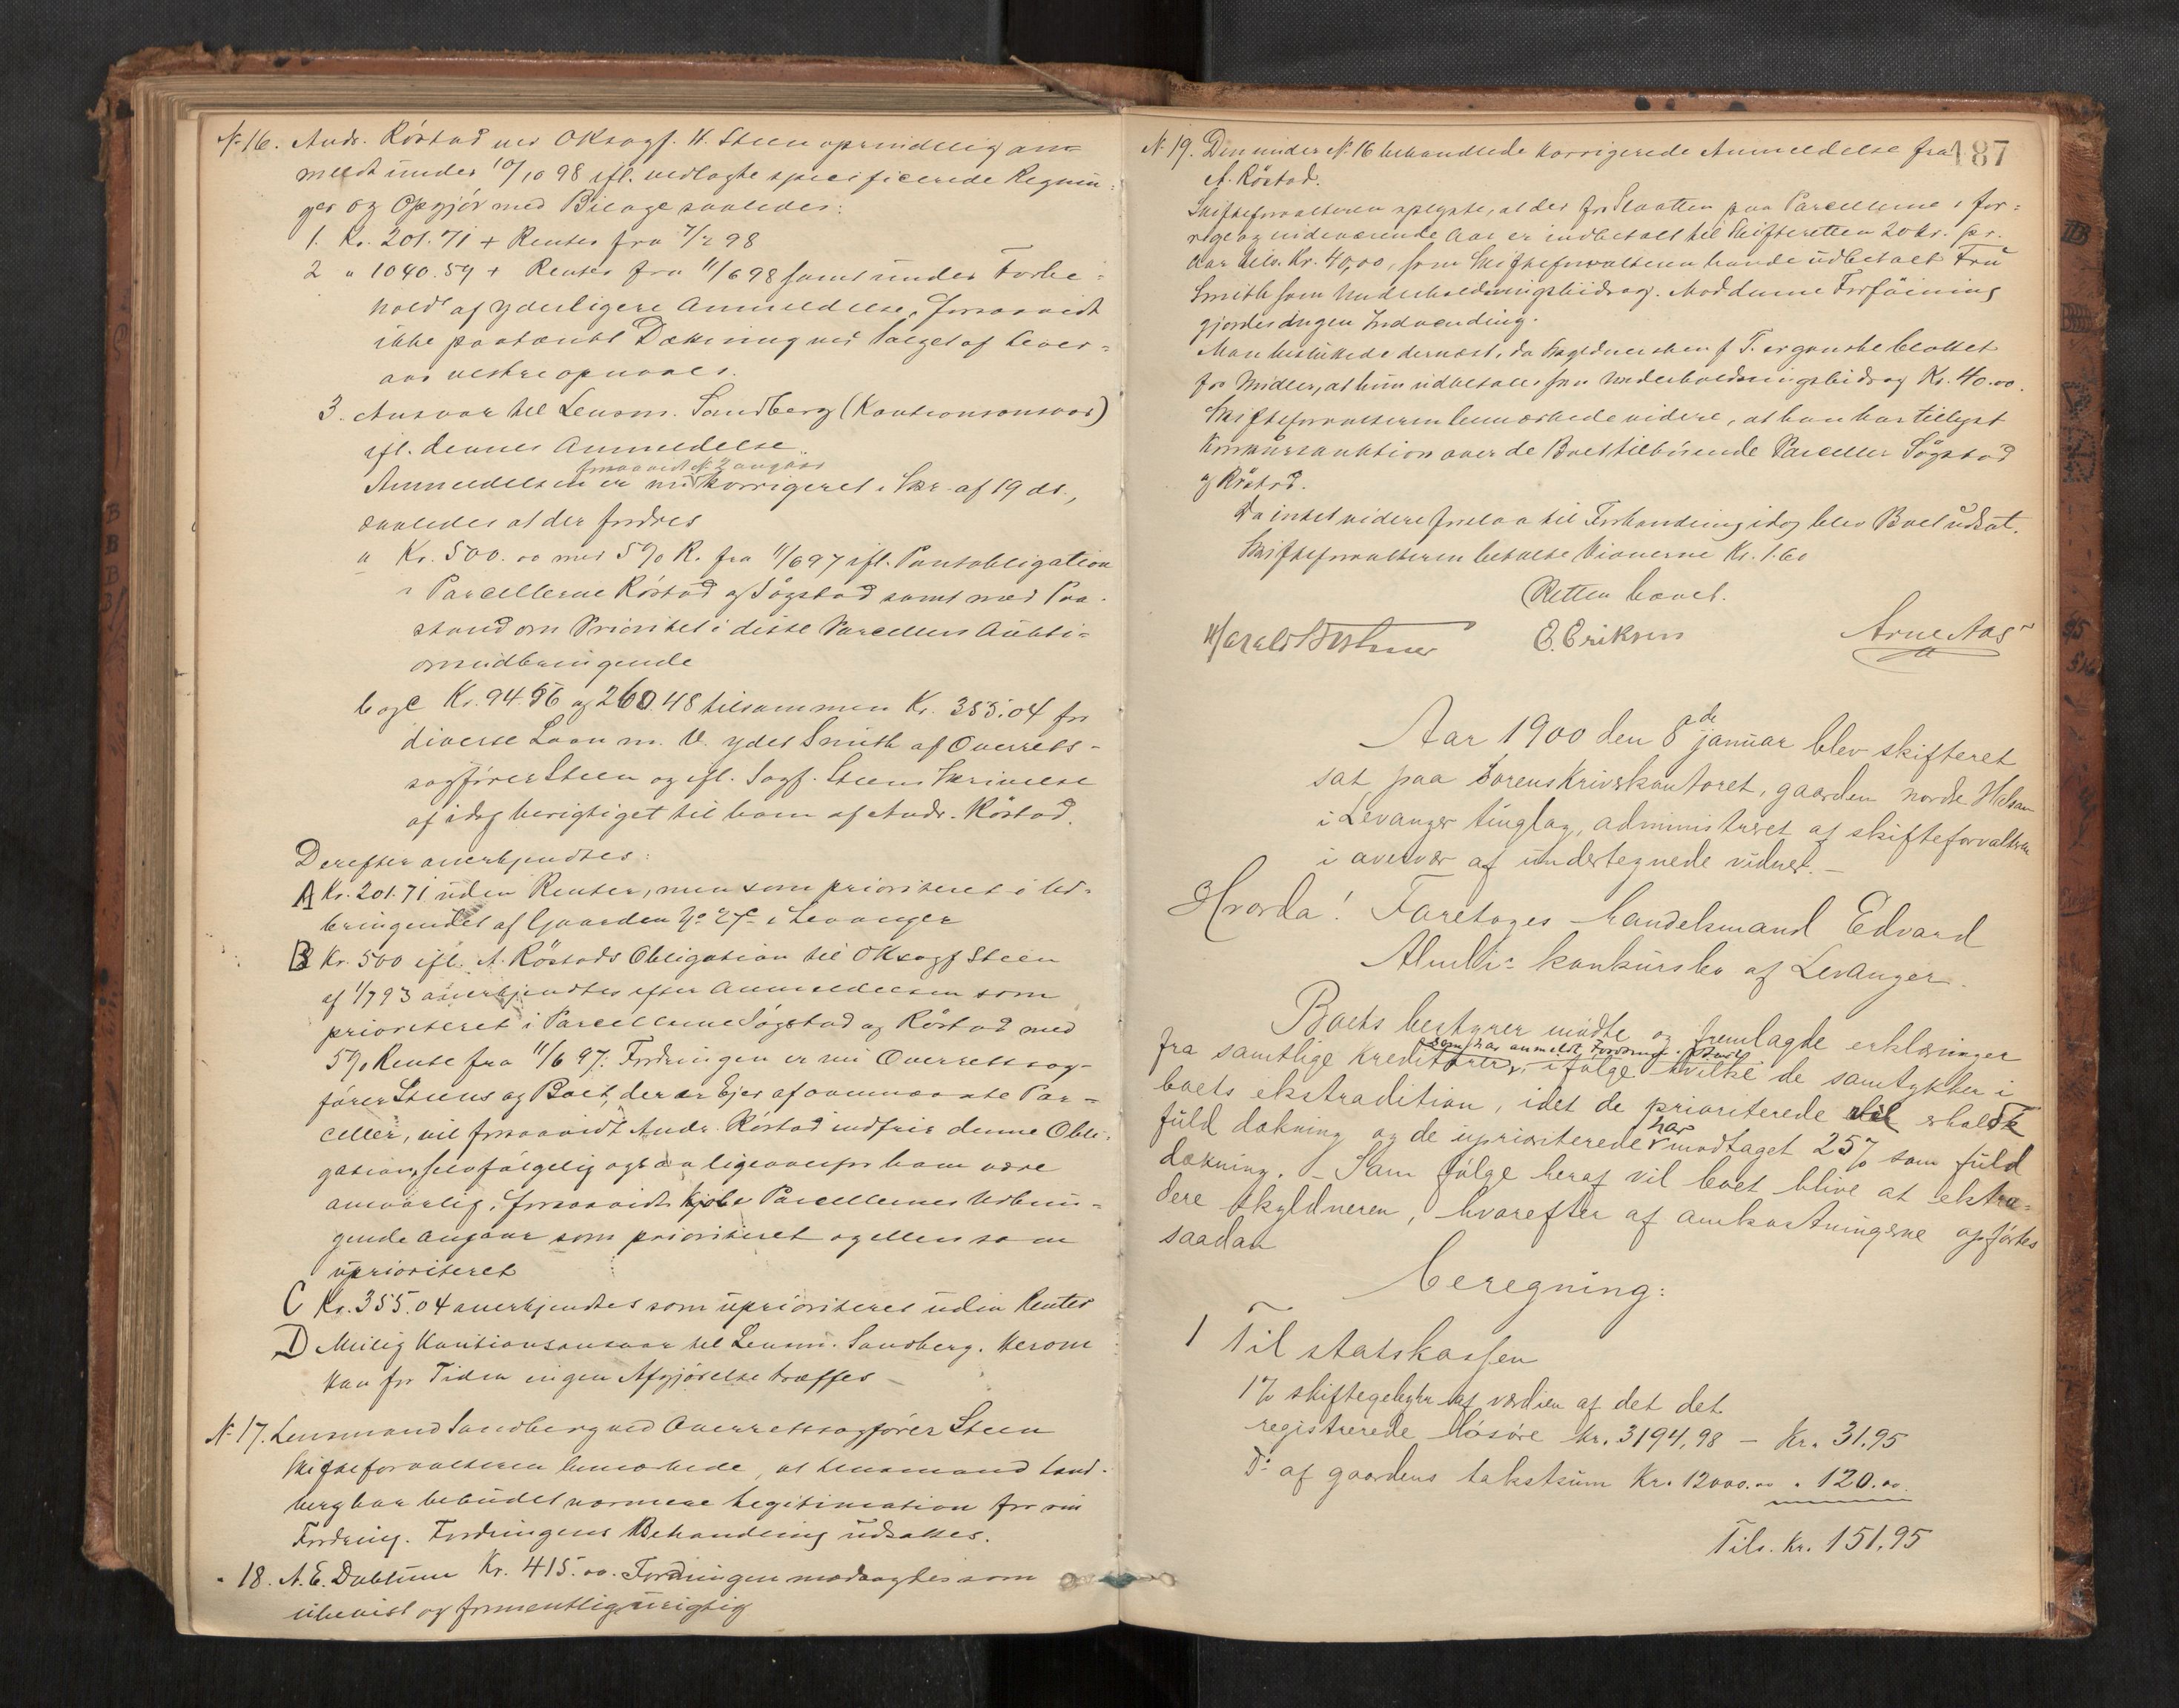 N. 16. Andr. Röstad ved OKsagf. H. Steen oprindelig an-
meldt under 10/10 98 ifl. vedlagte specificerede Regnin-
ger og Opgjör med Bilage saaledes:
1. Kr. 201.71 + Renter fra 7/2 98
2 " 1040.59 + Renter fra 11/6 98 samt under Forbe-
hold af yderligere Anmeldelse, forsaavidt
ikke paatænkt Dækning ved Salget af Lever-
aas vestre opnaaes.
3. Ansvar til Lensm. Sandberg (Kautionsansvar)
ifl. dennes Anmeldelse.
forsaavidt N. 2 angaar
Anmeldelsen er nu korrigeret i Skr. af 19 ds.,
saaledes at der fordres
a Kr. 500.00 med 5% R. fra 11/6 97 ifl. Pantobligation
i Parcellerne Röstad og Sögstad samt med Paa-
stand om Prioritet i disse Parcellers Aukti-
onsindbringende
b og c Kr. 94.56 og 260.48 tilsammen Kr. 355.04 for
diverse Laan m. V. ydet Smith af Overrets-
sagförer Steen og ifl. Sagf. Steens Skrivelse
af idag berigtiget til ham af Andr. Röstad.
Derefter anerkjendtes:
A Kr. 201.71 uden Renter, men som prioriteret i Ud-
bringendet af Gaarden No 27c i Levanger
B Kr. 500 ifl. A. Röstads Obligation til OKsagf Steen
af 1/7 93 anerkjendtes efter Anmeldelsen som
prioriteret i Parcellerne Sögstad og Röstad med
5% Rente fra 11/6 97. Fordringen er nu Overretssag-
förer Steens og Boet, der er Ejer af ovennævnte Par-
celler, vil forsaavidt Andr. Röstad indfrir denne Obli-
gation, selvfölgelig ogsaa ligeoverfor ham være
ansvarlig, forsaavidt Parcellernes Udbrin-
gende angaar som prioriteret og ellers som
uprioriteret
C Kr. 355.04 anerkjendtes som uprioriteret uden Renter
D Mulig Kautionsansvar til Lensm. Sandberg. Herom
kan for Tiden ingen Afgjörelse træffes
N. 17. Lensmand Sandberg ved Overretssagförer Steen
Skifteforvalteren bemærkede, at Lensmand Sand-
berg har bebudet nærmere Legitimation for sin
Fordring. Fordringens Behandling udsattes.
" 18. A. E. Kr. 415.00. Fordringen modsagdes som
ubevist og formentlig urigtig
187
N. 19. Den under N. 16 behandlede korrigerede Anmeldelse fra
A. Röstad.
Skifteforvalteren oplyste, at der for Slaatten paa Parcellerne i for-
rige og indeværende Aar er indbetalt til Skifteretten 20 kr. pr.
Aar tils. Kr. 40,00, som Skifteforvalteren havde udbetalt Fru
Smith som Underholdningsbidrag. Mod denne Forföining
gjordes ingen Indvending.
Man besluttede dernæst, da Skyldnersken f. T. er ganske blottet
for Midler, at hun udbetales som Underholdningsbidrag Kr. 40.00.
Skifteforvalteren bemærkede videre, at han har tillyst
Konkursauktion over de Boet tilhörende Parceller Sögstad
og Röstad.
Da intet videre forelaa til Forhandling idag blev Boet udsat.
Skifteforvalteren betalte Vidnerne Kr. 1.60
Retten hævet.
E. Eriksen Arne Aas
Aar 1900 den 8de januar blev skifteret
sat paa Sorenskriverkontoret, gaarden nordre Halsan
i Levanger tinglag, administreret af skifteforvalteren
i overvær af undertegnede vidner.—
Hvorda! Foretoges handelsmand Edvard
konkursbo af Levanger.
Boets bestyrer mödte og fremlagde erklæringer
som har anmeldt Fordring i Boet
fra samtlige kreditorer, ifölge hvilke de samtykker i
boets ekstradition, idet de prioriterede erholdt
har
fuld dækning og de uprioriterede modtaget 25% som fuld
dækning. – Som fölge heraf vil boet blive at ekstra-
dere skyldneren, hvorefter af omkostningerne opförtes
saadan
beregning:
1 Til statskassen
1% skiftegebyhr af værdien af det det
registrerede lösöre kr. 3194,98 – Kr. 31.95
Do af gaardens takstsum Kr. 12000.00 " 120.00
Tils. Kr. 151,95